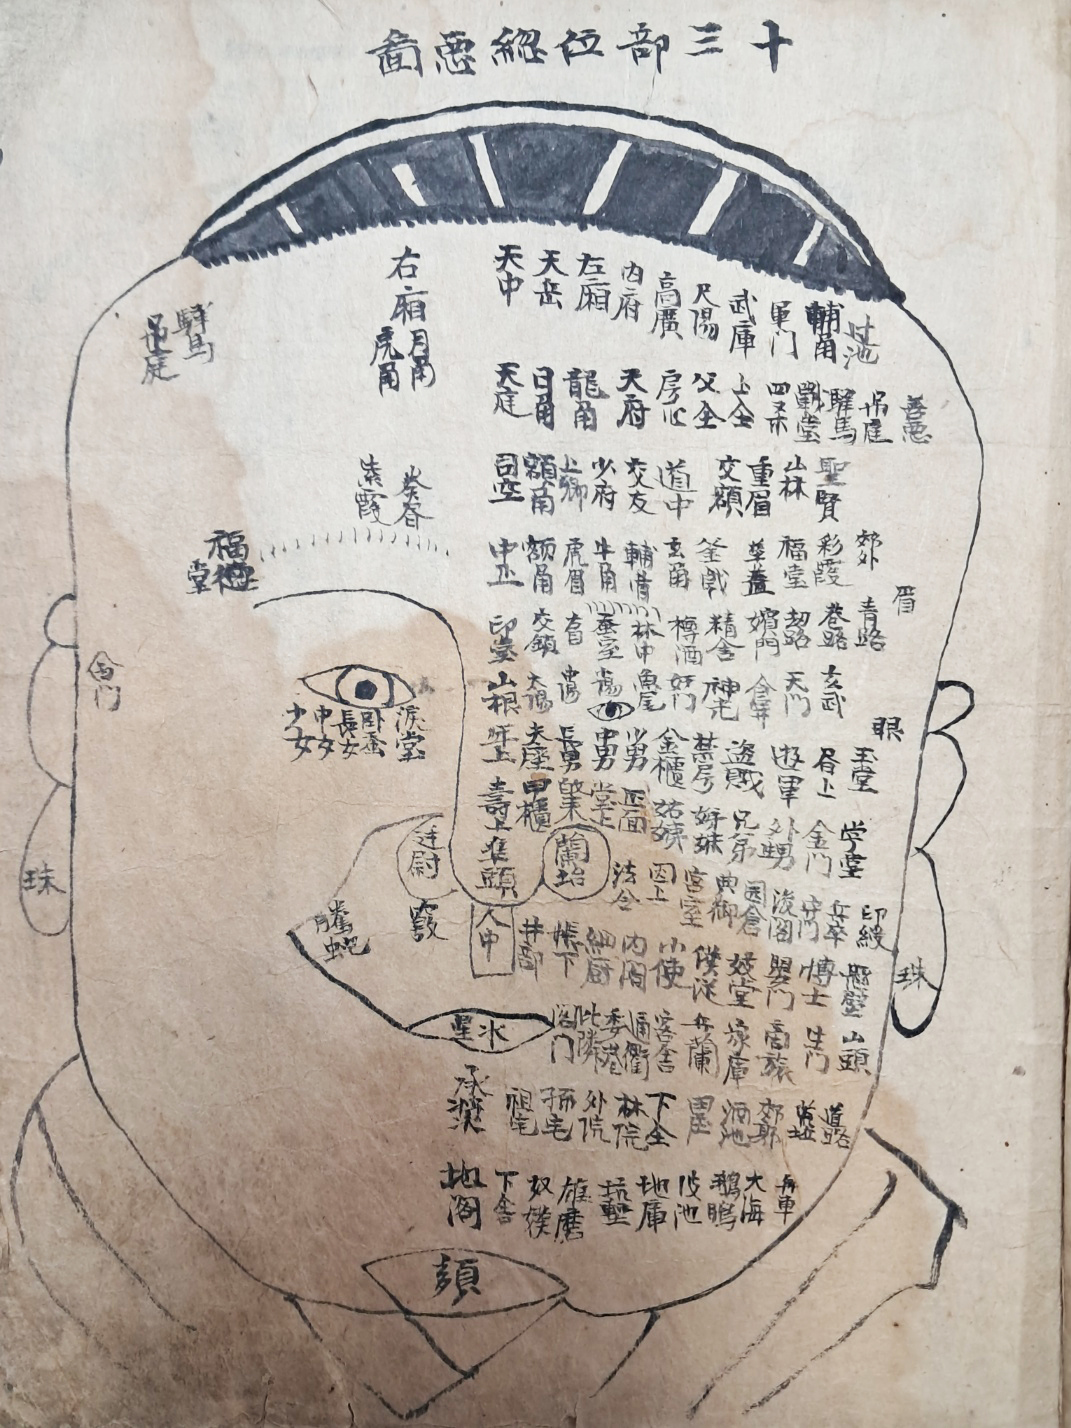 十三部位總惡圖
天中 天岳 左廂 内府 高廣 尺陽 武庫 軍門 輔角
右廂 月角 虎角
驛馬 吊庭
天庭 日角 龍角 天府 房心 父全 上全 四杀 戰堂 驛馬 吊庭 善惡
司空 額角 上卿 少府 交友 道中 交額 重眉 山林 聖賢
紫霞
中正 额角 虎眉 牛角 輔骨 玄角 華蓋 福堂 彩霞 郊外
福德堂
眉
印堂 交鎖 蚕室 林中 樽酒 精舍 嬪門 劫路 巷路 青路
山根 太陽 中陽 少陽 魚尾 奸門 神光 天門 玄武
命门
眼
淚堂 卧蚕 長女 中女 少女
年上 夫座 長男 中男 少男 金櫃 禁房 盜贼 遊軍 眉上 玉堂
壽上 甲櫃 堂上 正面 姑姨 姊妹 兄弟 外甥 金門 学堂
準頭 蘭坮 法令 宮室 典御 园倉 後阁 守門 兵卒 印綬
廷尉
人中 井部 帳下 細厨 内阁 小使 僕從 妓堂 嬰門 博士 懸壁
騰蛇
珠
珠
水星 阁门 比隣 委巷 通衢 客舍 兵蘭 家庫 商旅 生門 山頭
承漿 祖宅 孫宅 外院 林院 下全 酒池 郊郭 道路
地阁 下舍 奴僕 碓磨 坑塹 地庫 陂池 鵝鴨 大海 舟車
頦